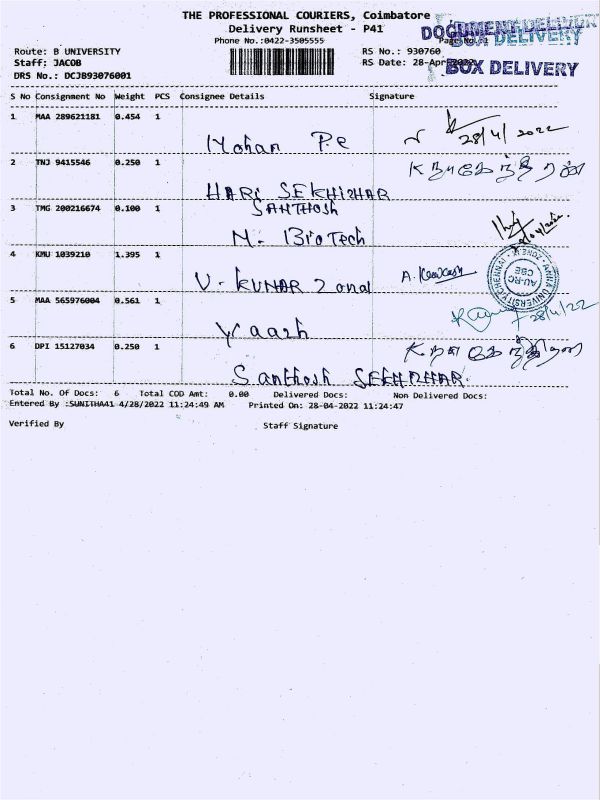 THE PROFESSIONAL COURIERS, Coimbatore
Delivery Runsheet - P41
DOCUMENT DELIVERY
BOX DELIVERY
Phone No.:0422-3505555
Page No.:
Route: B UNIVERSITY
RS No.: 930760
Staff: JACOB
RS Date: 28-Apr
BOX DELIVERY
DRS No.: DCJB93076001
S No Consignment No Weight PCS Consignee Details Signature
1 MAA 289621181 0.454 1
Mohan P.e
28/4/2022
2 TNJ 9415546 0.250 1
HARI SEKHIZHAR
3 TMG 200216674 0.100 1
SANTHOSH
M. BioTech
4 KMU 1039210 1.395 1
V. KUMAR Zonal
5 MAA 565976004 0.561 1
28/4/22
6 DPI 15127034 0.250 1
Santhosh SEKHIZHAR.
Total No. Of Docs: 6 Total COD Amt: 0.00 Delivered Docs: Non Delivered Docs:
Entered By :SUNITHA41 4/28/2022 11:24:49 AM Printed On: 28-04-2022 11:24:47
Verified By Staff Signature